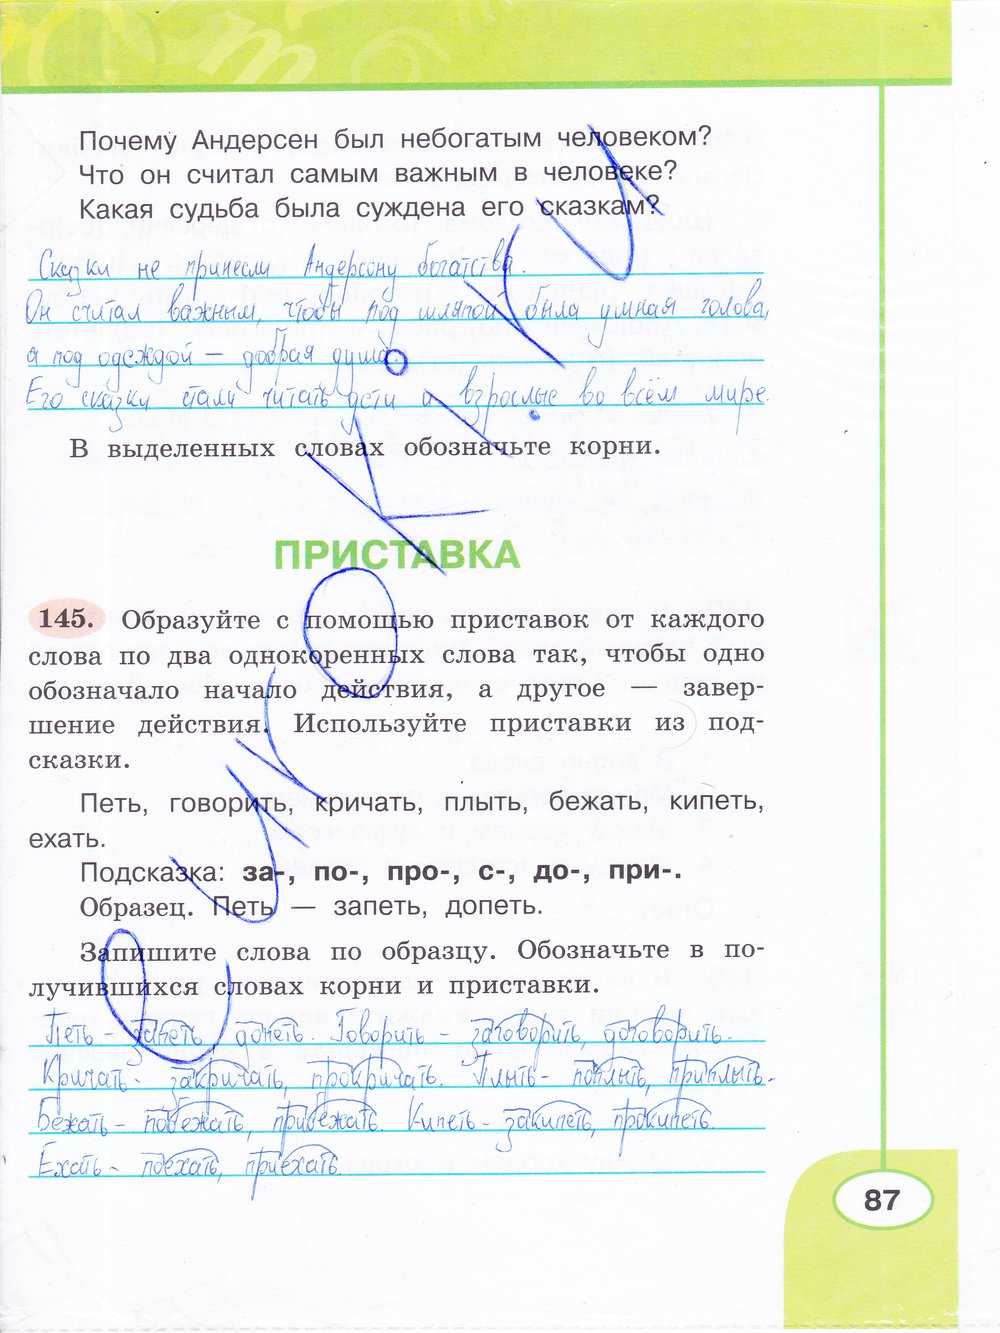 Почему Андерсен был небогатым человеком?
Что он считал самым важным в человеке?
Какая судьба была суждена его сказкам?
Сказки не принесли Андерсону богатства.
Он считал важным, чтобы под шляпой была умная голова,
а под одеждой – добрая душа.
Его сказки стали читать дети и взрослые во всём мире.
В выделенных словах обозначьте корни.
ПРИСТАВКА
145. Образуйте с помощью приставок от каждого
слова по два однокоренных слова так, чтобы одно
обозначало начало действия, а другое — завер-
шение действия. Используйте приставки из под-
сказки.
Петь, говорить, кричать, плыть, бежать, кипеть,
ехать.
Подсказка: за-, по-, про-, с-, до-, при-.
Образец. Петь — запеть, допеть.
Запишите слова по образцу. Обозначьте в по-
лучившихся словах корни и приставки.
Петь – запеть, допеть. Говорить – заговорить, договорить.
Кричать – закричать, прокричать. Плыть – поплыть, приплыть.
Бежать – побежать, прибежать. Кипеть – закипеть, прокипеть.
Ехать – поехать, приехать.
87
еуроки.ки